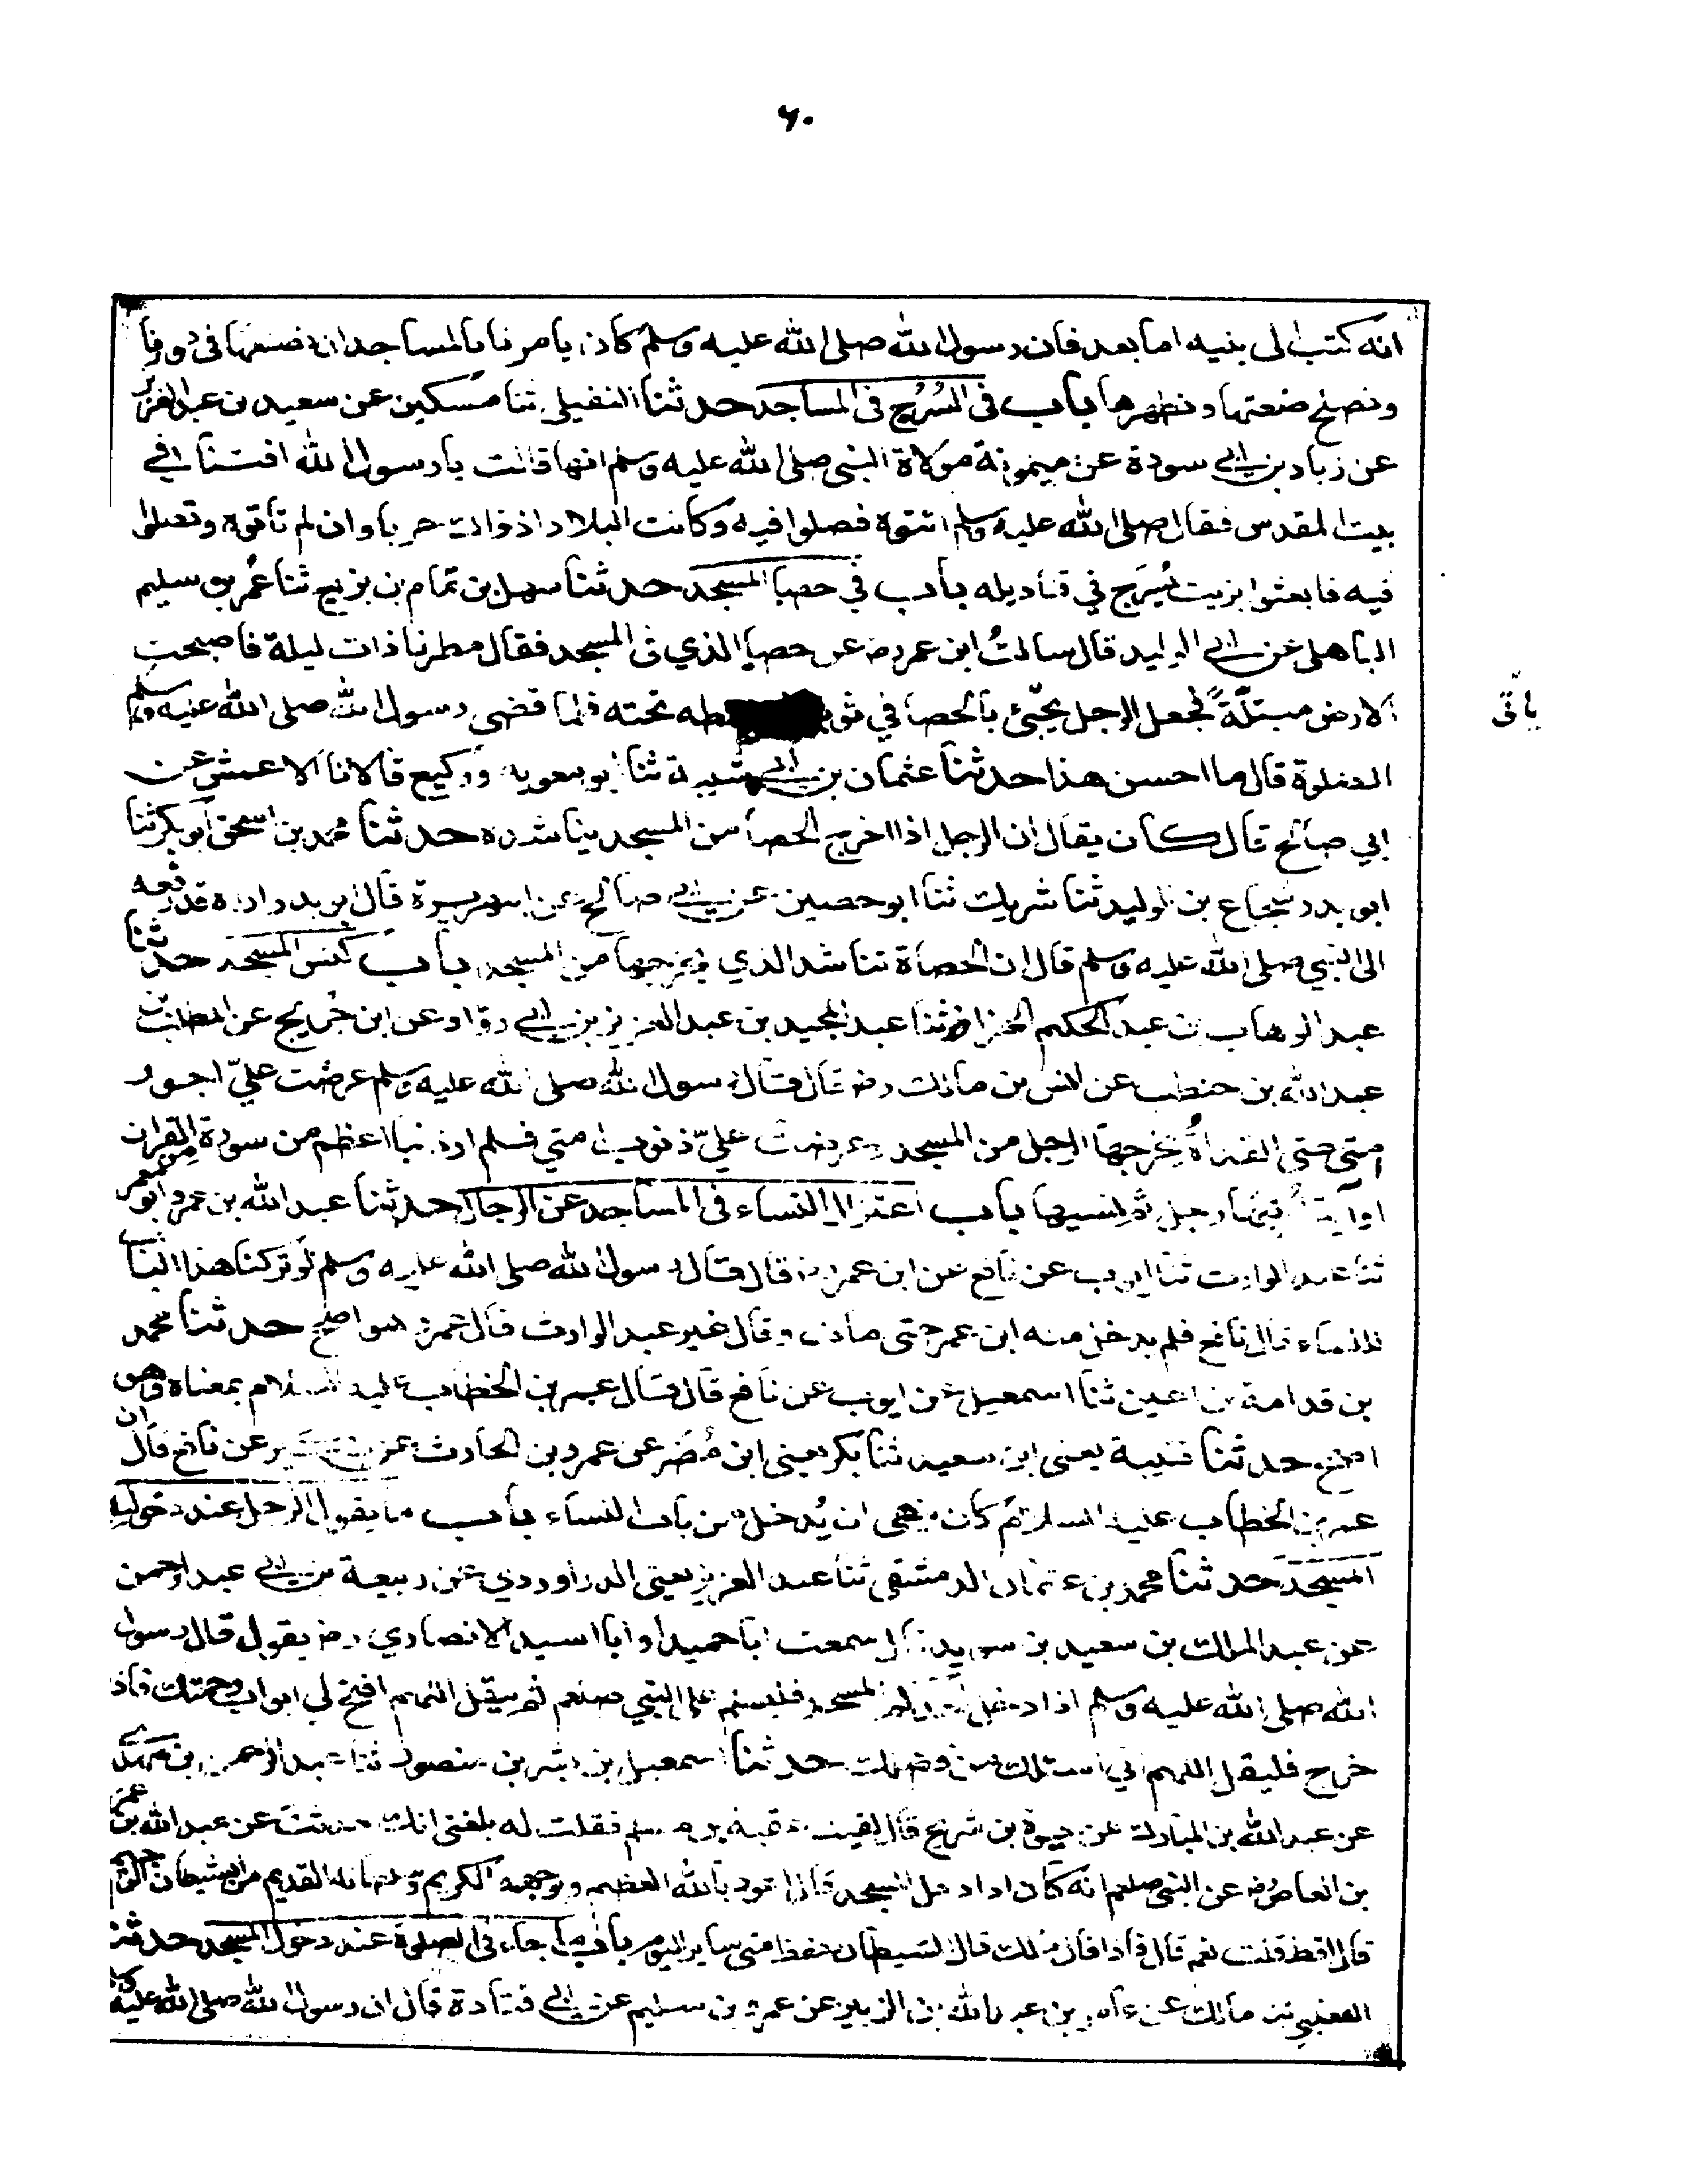 ٦٠
انه كتب الى بنيه اما بعد فان رسول الله صلى الله عليه وسلم كان يامرنا بالمساجد ان نصنعها في دورنا
ونصلح صنعتها ونطهرها باب في السُرُج في المساجد حدثنا النفيلي ثنا مسكين عن سعيد بن عبد العزيز
عن زياد بن ابي سودة عن ميمونة مولاة النبي صلى الله عليه وسلم انها قالت يا رسول الله افتنا في
بيت المقدس فقال صلى الله عليه وسلم ائتوه فصلوا فيه وكانت البلاد اذ ذاك حربا وان لم تأتوه وتصلوا
فيه فابعثوا بزيت يُسرَج في قناديله باب في حصا المسجد حدثنا سهل بن تمام بن بزيع ثنا عُمر بن سليم
الباهلي عن ابي الوليد قال سالتُ ابن عمر رض عن حصا الذي في المسجد فقال مطرنا ذات ليلة فاصبحت
الارض مبتلّةً فجعل الرجل يجيئ بالحصا في ثوبه تحته فلما قضى رسول الله صلى الله عليه وسلم
الصلوة قال ما احسن هذا حدثنا عثمان بن ابي شيبة ثنا ابو معوية ووكيع قالا نا الاعمش عن
ابي صالح قال كان يقال ان الرجل اذا اخرج الحصا من المسجد يناشده حدثنا محمد بن اسحق ابو بكر ثنا
ابو بدر شجاع بن الوليد ثنا شريك ثنا ابو حصين عن ابي صالح عن ابي هريرة قال ابو بدر اراه قد رفعه
الى النبي صلى الله عليه وسلم قال ان الحصاة تناشد الذي يخرجها من المسجد باب كنس المسجد حدثنا
عبد الوهاب بن عبد الحكم الخزاز ثنا عبد المجيد بن عبد العزيز بن ابي روّاد عن ابن جُريج عن المطلب بن
عبد الله بن حنطب عن انس بن مالك رض قال قال رسول الله صلى الله عليه وسلم عرضت عليّ اجور
امتي حتى القذاةُ يخرجها الرجل من المسجد وعرضت عليّ ذنوب امتي فلم ار ذنبا اعظم من سورة من القران
او آية رجل ثم نسيها باب اعتزال النساء في المساجد عن الرجال حدثنا عبد الله بن عمرو ابو معمر
ثنا عبد الوارث ثنا ايوب عن نافع عن ابن عمر رض قال قال رسول الله صلى الله عليه وسلم لو تركنا هذا الباب
للنساء قال نافع فلم يدخل منه ابن عمر حتى مات وقال غير عبد الوارث قال عمر وهو اصح حدثنا محمد
بن قدامة بن اعين ثنا اسمعيل عن ايوب عن نافع قال قال عمر بن الخطاب عليه السلام بمعناه وهو
اصح حدثنا قتيبة يعني ابن سعيد ثنا بكر يعني ابن مُضَر عن عمرو بن الحارث عن بكير عن نافع قال ان
عمر بن الخطاب عليه السلام كان ينهى ان يُدخل من باب النساء باب ما يقول الرجل عند دخوله
المسجد حدثنا محمد بن عثمان الدمشقي ثنا عبد العزيز يعني الدراوردي عن ربيعة بن ابي عبد الرحمن
عن عبد الملك بن سعيد بن سويد قال سمعت ابا حميد او ابا اسيد الانصاري رض يقول قال رسول
الله صلى الله عليه وسلم اذا دخل احدكم المسجد فليسلم على النبي صلعم ثم ليقل اللهم افتح لي ابواب رحمتك فاذا
خرج فليقل اللهم اني اسئلك من فضلك حدثنا اسمعيل بن بشر بن منصور ثنا عبد الرحمن بن مهدي
عن عبد الله بن المبارك عن حيوة بن شريح قال لقيت عقبة بن مسلم فقلت له بلغني انك حدثت عن عبد الله بن عمرو
بن العاص رض عن النبي صلعم انه كان اذا دخل المسجد قال اعوذ بالله العظيم وبوجهه الكريم وسلطانه القديم من الشيطان الرجيم
قال اقط قلت نعم قال فاذا قال ذلك قال الشيطان حفظ مني ساير اليوم باب ما جاء في الصلوة عند دخول المسجد حدثنا
القعنبي ثنا مالك عن عامر بن عبد الله بن الزبير عن عمرو بن سليم عن ابي قتادة قال ان رسول الله صلى الله عليه وسلم